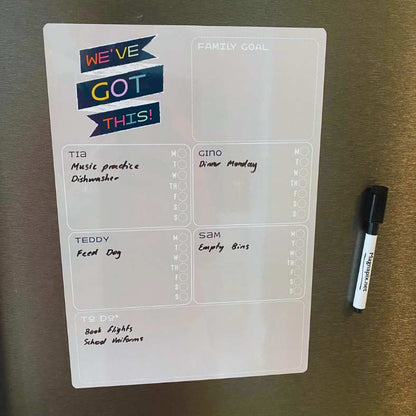 WE'VE
GOT
THIS!
FAMILY GOAL
TIA
Music practice
Dishwasher
M
T
W
TH
F
S
S
GINO
Dinner Monday
M
T
W
TH
F
S
S
TEDDY
Feed Dog
M
T
W
TH
F
S
S
SAM
Empty Bins
M
T
W
TH
F
S
S
TO DO*
Book flights
School Uniforms